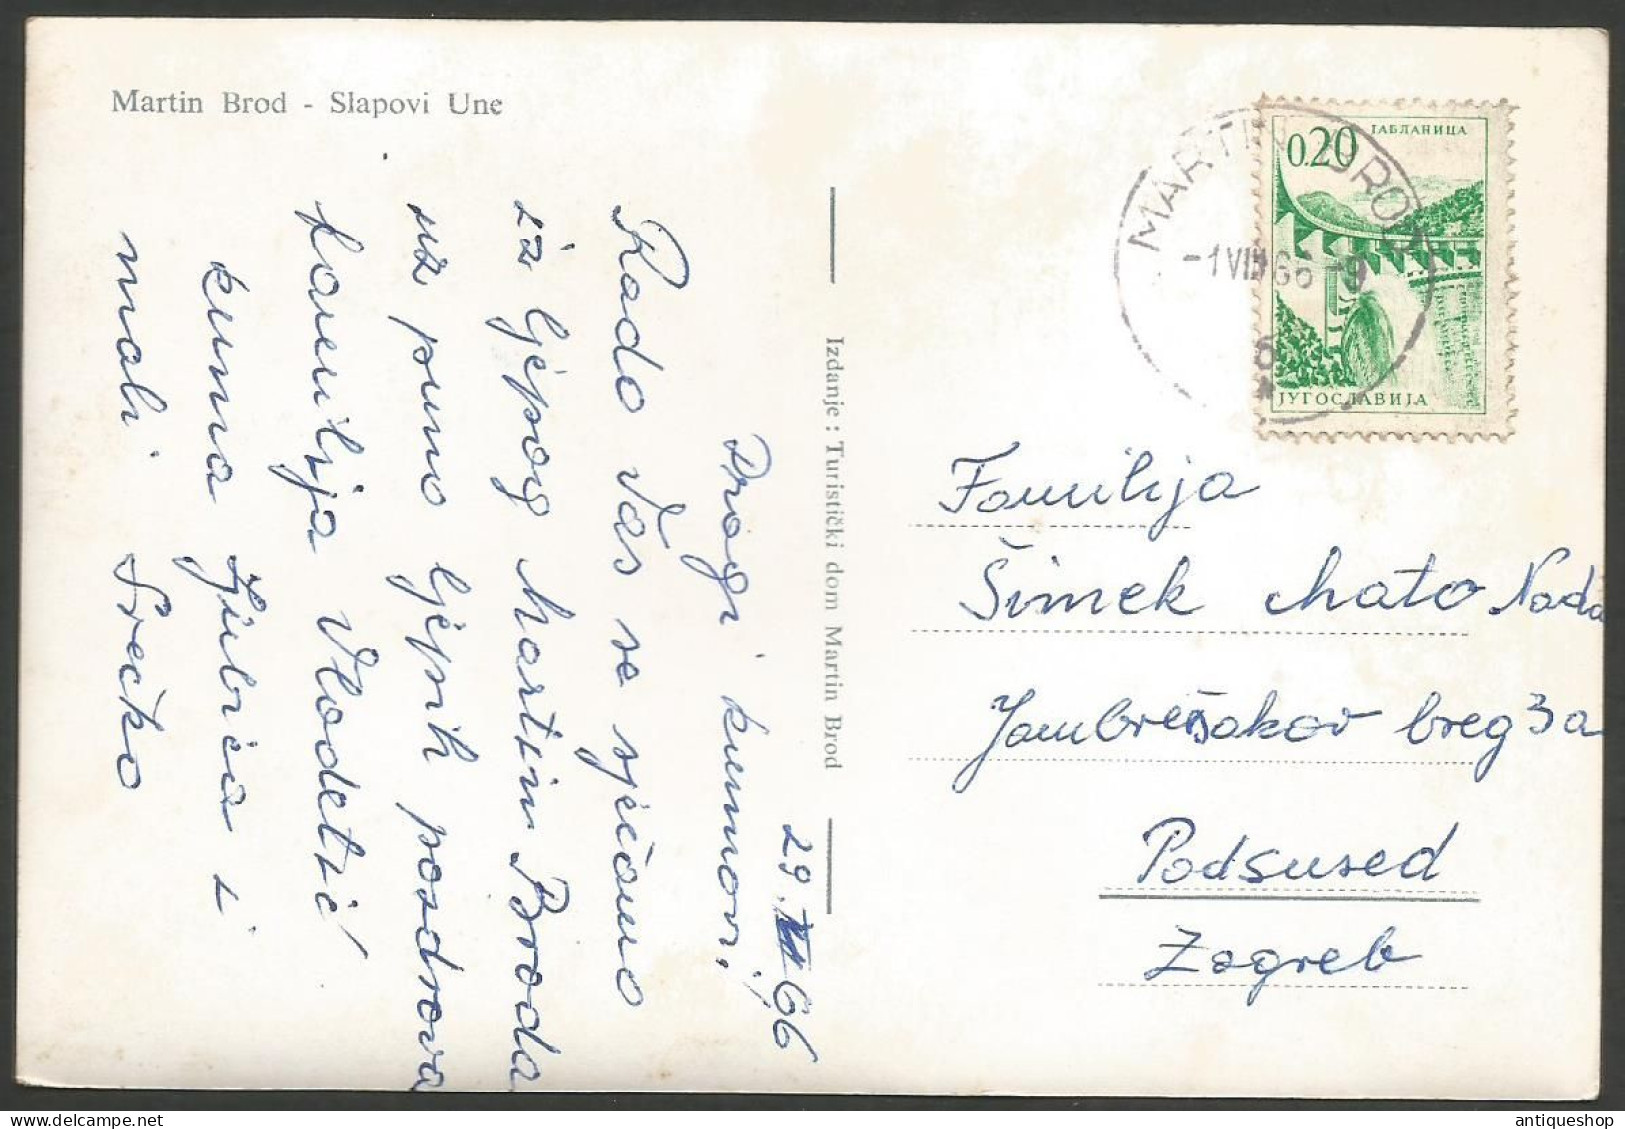 Martin Brod - Slapovi Une
29. VII 66
Dragi kumovi,
Rado Vas se sjećamo
iz ljepog Martin Broda
uz puno ljepih posdrova
familija Vlodetić
kuma Ljubica i
mali Srećko
Izdanje : Turistički dom Martin Brod
ЈАБЛАНИЦА
0.20
ЈУГОСЛАВИЈА
MARTIN BROD
-1 VIII 66 -9
6
Familija
Šimek Mato Nada
Jambrešakov breg 3a
Podsused
Zagreb
antiqueshop